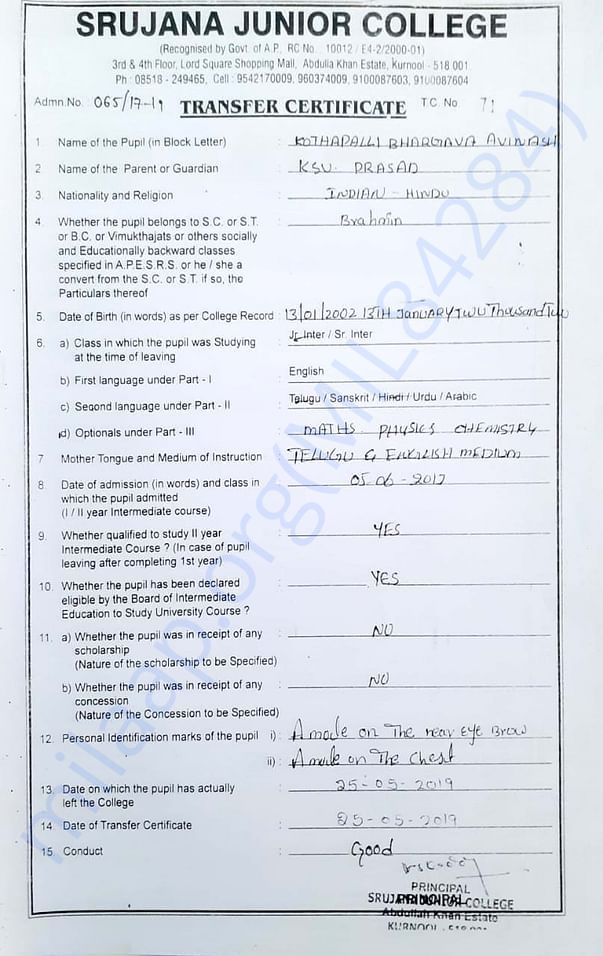 SRUJANA JUNIOR COLLEGE
(Recognised by Govt. of A.P., RC No. 10012 / E4-2/2000-01)
3rd & 4th Floor, Lord Square Shopping Mall, Abdulla Khan Estate, Kurnool - 518 001
Ph : 08518 - 249465, Cell : 9542170009, 960374009, 9100087603, 9100087604
Admn.No. 065/17-19 TRANSFER CERTIFICATE T.C. No. 71
1. Name of the Pupil (in Block Letter) : KOTHAPALLI BHARGAVA AVINASH
2. Name of the Parent or Guardian : KSV. PRASAD
3. Nationality and Religion : INDIAN - HINDU
4. Whether the pupil belongs to S.C. or S.T. : Brahmin
or B.C. or Vimukthajats or others socially
and Educationally backward classes
specified in A.P.E.S.R.S. or he / she a
convert from the S.C. or S.T. if so, the
Particulars thereof
5. Date of Birth (in words) as per College Record : 13/01/2002 13TH JANUARY TWO Thousand Two
6. a) Class in which the pupil was Studying : Jr. Inter / Sr. Inter
at the time of leaving
b) First language under Part - I : English
c) Second language under Part - II : Telugu / Sanskrit / Hindi / Urdu / Arabic
d) Optionals under Part - III : MATHS PHYSICS CHEMISTRY
7 Mother Tongue and Medium of Instruction : TELUGU & ENGLISH MEDIUM
8. Date of admission (in words) and class in : 05-06-2017
which the pupil admitted
(I / II year Intermediate course)
9. Whether qualified to study II year : YES
Intermediate Course ? (In case of pupil
leaving after completing 1st year)
10. Whether the pupil has been declared : YES
eligible by the Board of Intermediate
Education to Study University Course ?
11. a) Whether the pupil was in receipt of any : NO
scholarship
(Nature of the scholarship to be Specified)
b) Whether the pupil was in receipt of any : NO
concession
(Nature of the Concession to be Specified)
12. Personal Identification marks of the pupil i) : A mole on The near Eye Brow
ii) : A mole on The Chest
13. Date on which the pupil has actually : 25-05-2019
left the College
14. Date of Transfer Certificate : 25-05-2019
15. Conduct : Good
PRINCIPAL
PRINCIPAL
SRUJANA JUNIOR COLLEGE
Abdullah Khan Estate
KURNOOL
milaap.org(MIL84284)